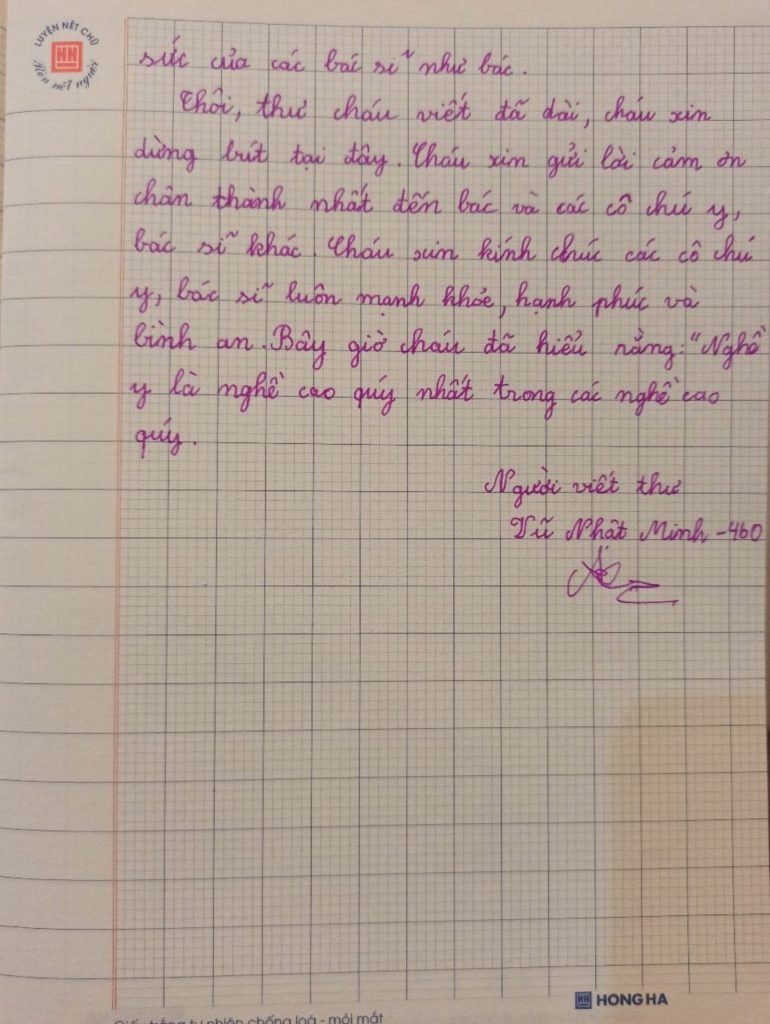 LUYỆN NÉT CHỮ
HH
Rèn nết người
sức của các bác sĩ như bác.
Thôi, thư cháu viết đã dài, cháu xin
dừng bút tại đây. Cháu xin gửi lời cảm ơn
chân thành nhất đến bác và các cô chú y,
bác sĩ khác. Cháu xin kính chúc các cô chú
y, bác sĩ luôn mạnh khỏe, hạnh phúc và
bình an. Bây giờ cháu đã hiểu rằng: "Nghề
y là nghề cao quý nhất trong các nghề cao
quý.
Người viết thư
Vũ Nhật Minh - 4G0
HH HONG HA
Giấy trắng tự nhiên chống loá - mỏi mắt